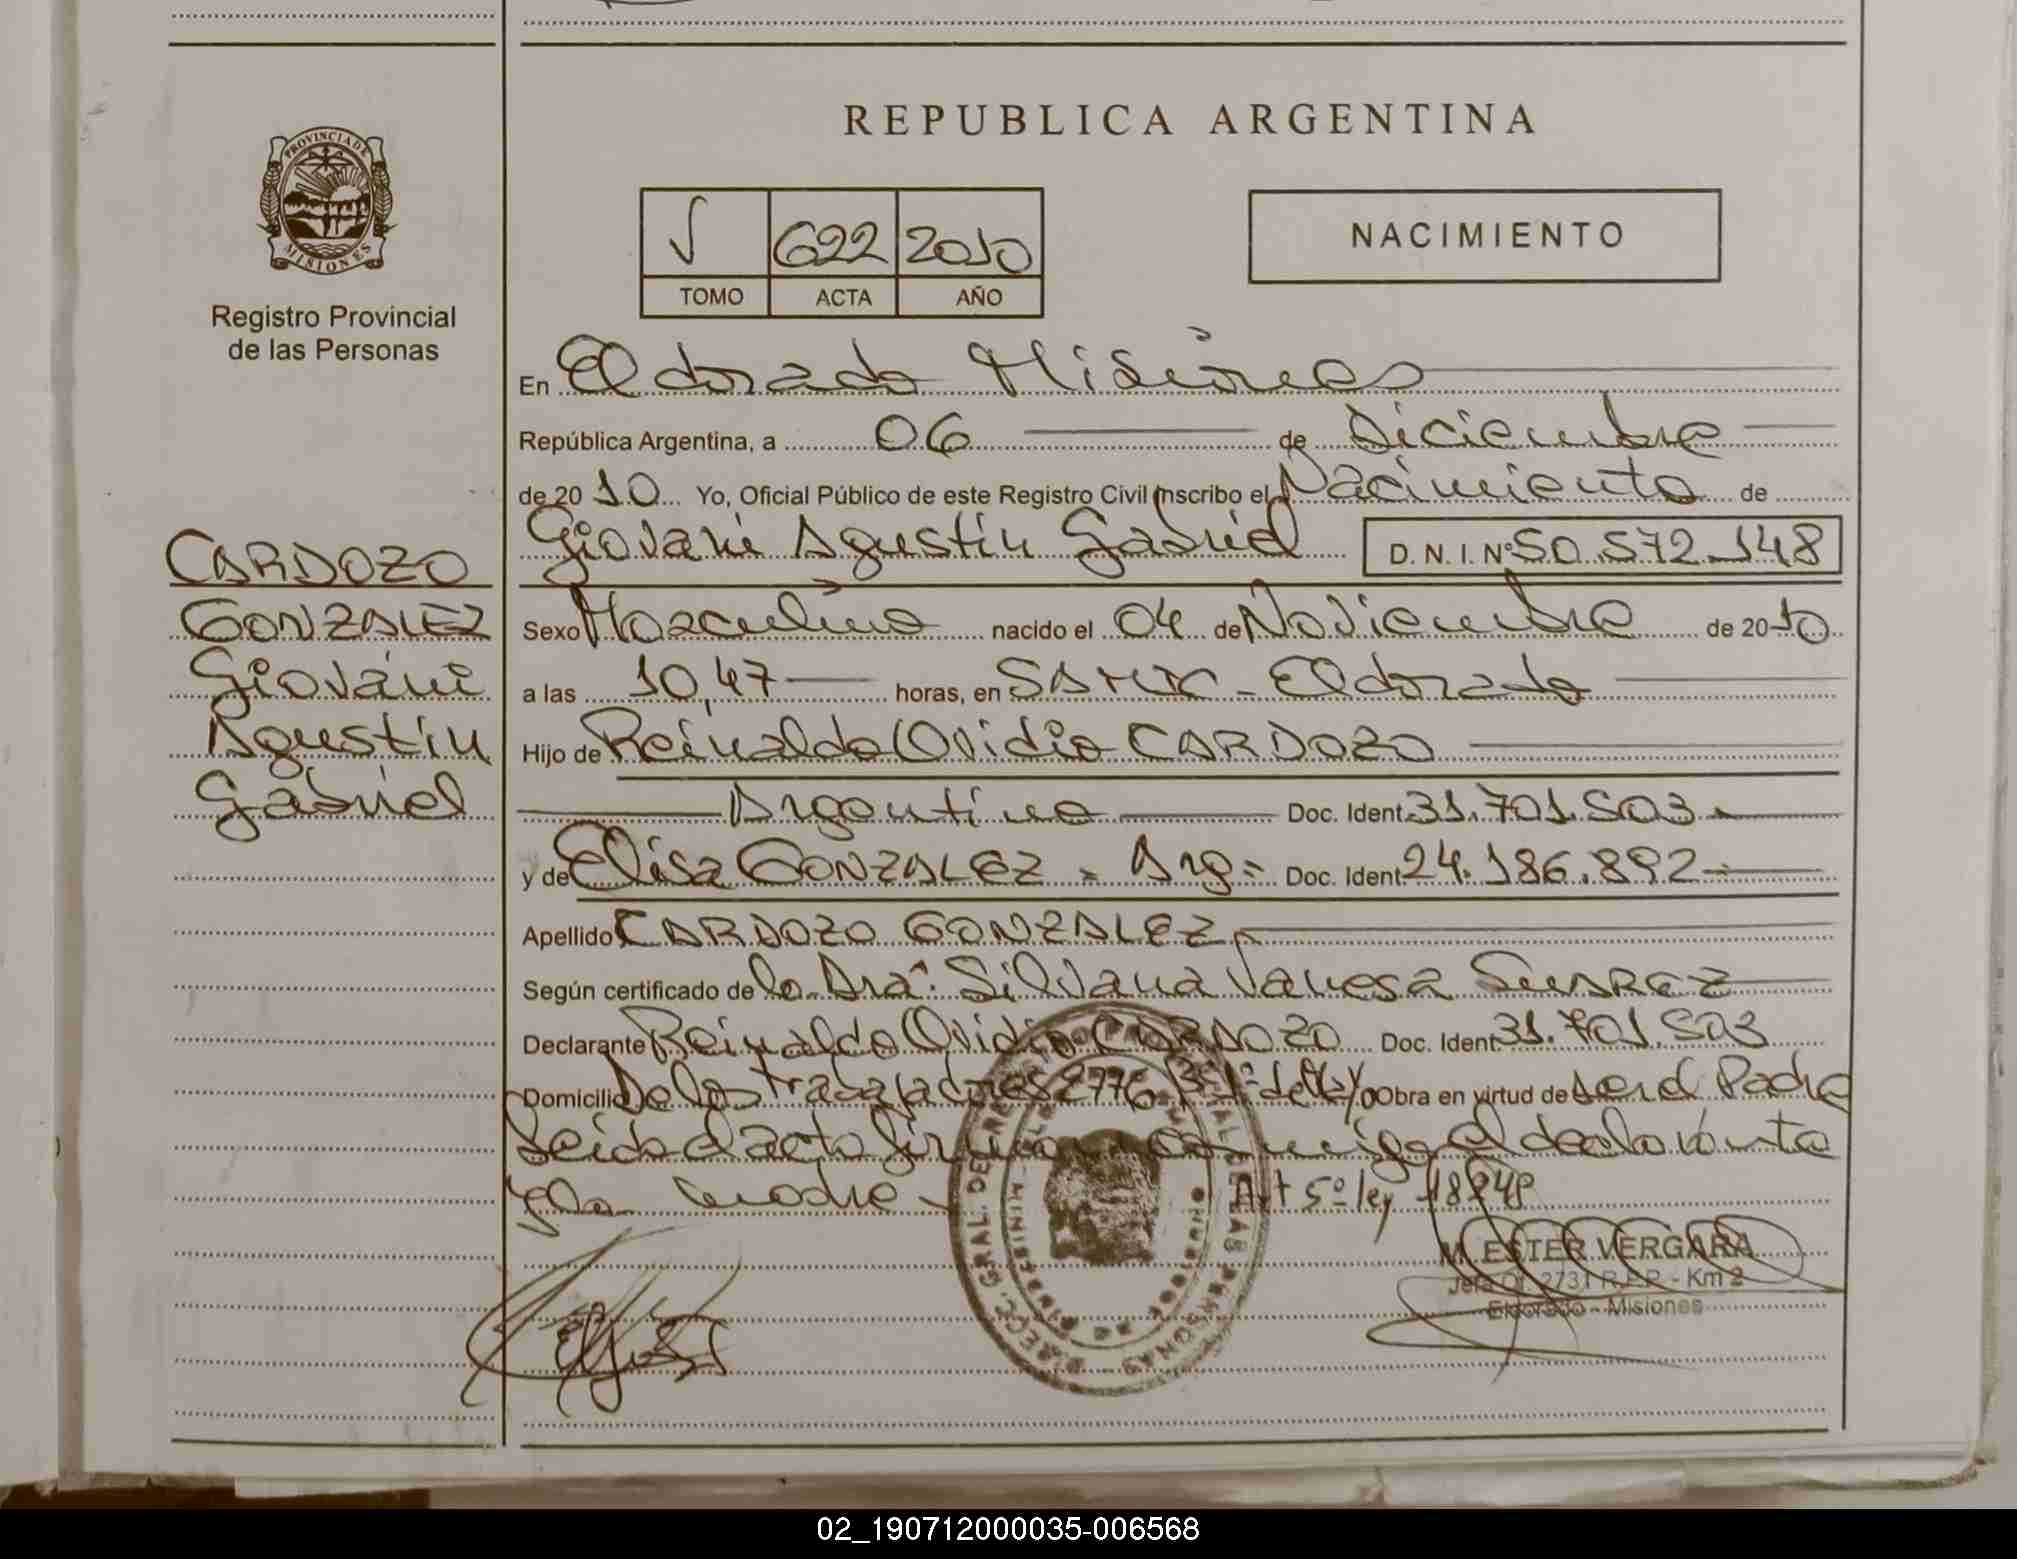 REPUBLICA ARGENTINA
PROVINCIA DE MISIONES
Registro Provincial
de las Personas
NACIMIENTO
V 622 2010
TOMO ACTA AÑO
En Eldorado Misiones
República Argentina, a 06 de Diciembre
de 2010 Yo, Oficial Público de este Registro Civil inscribo el Nacimiento de
Giovani Agustin Gabriel D. N. I. Nº 50.572.148
CARDOZO
GONZALEZ
Giovani
Agustin
Gabriel
Sexo Masculino nacido el 04 de Noviembre de 2010
a las 10,47 horas, en SAMIC - Eldorado
Hijo de Reinaldo Ovidio CARDOZO
Argentino Doc. Ident. 31.701.503
y de Elisa GONZALEZ - Arg = Doc. Ident. 24.186.892
Apellido CARDOZO GONZALEZ
Según certificado de la Dra. Silvana Vanesa SUAREZ
Declarante Reinaldo Ovidio CARDOZO Doc. Ident. 31.701.503
Domicilio De los trabajadores 2776 Bº 1º de Mayo Obra en virtud de ser el Padre
Leido el acto firman conmigo el declarante
y la madre - Art 5º ley 18248
M. ESTER VERGARA
Jefa Of. 2731 R.P.P. - Km 2
Eldorado - Misiones
02_190712000035-006568